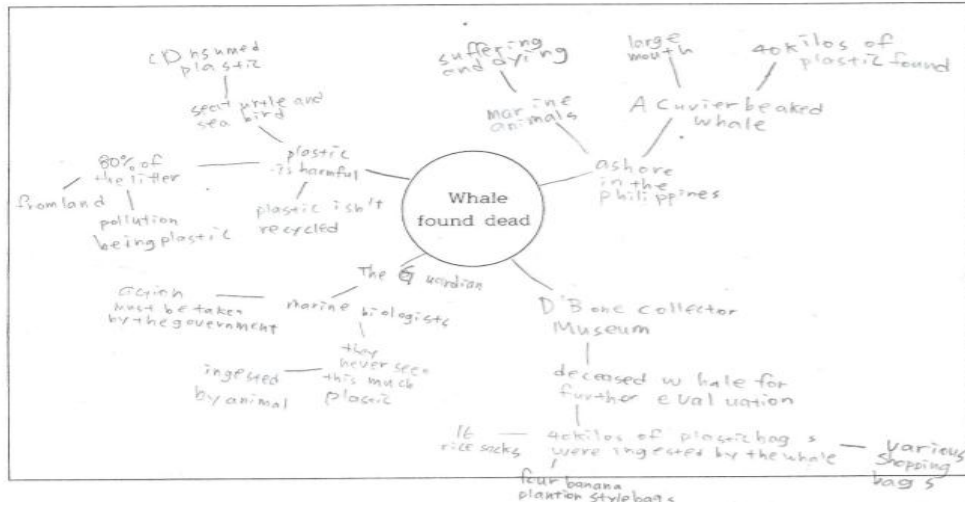 Whale
found dead
consumed
plastic
sea turtle and
sea bird
80% of
the litter
from land
pollution
being plastic
plastic
is harmful
plastic isn't
recycled
suffering
and dying
marine
animals
large
mouth
40 kilos of
plastic found
A Cuvier beaked
whale
ashore
in the
philippines
The Guardian
marine biologists
action
must be taken
by the government
they
never seen
this much
plastic
ingested
by animal
D'Bone collector
Museum
deceased whale for
further evaluation
40 kilos of plastic bags
were ingested by the whale
16
rice sacks
four banana
plantion style bags
various
shopping
bags